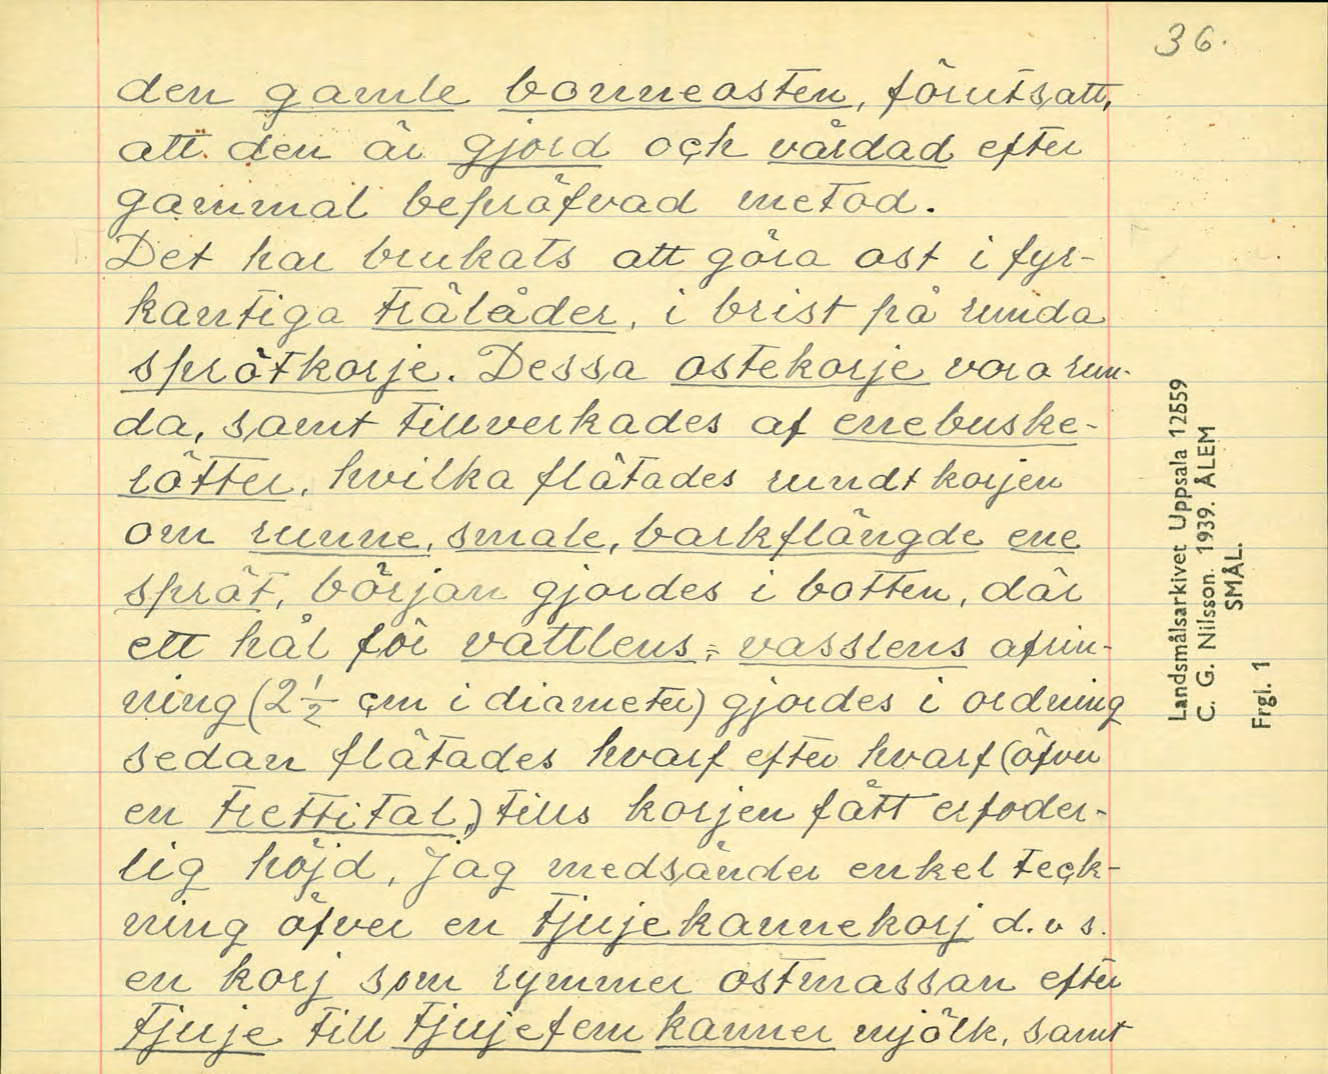 36.
den gamle bonneosten, förutsatt,
att den är gjord och vårdad efter
gammal bepröfvad metod.
Det har brukats att göra ost i fyr-
kantiga trälåder, i brist på runda
sprötkorje. Dessa ostekorje vora run-
da, samt tillverkades af enebuske-
rötter, hvilka flätades rundt korjen
om runne, smale, barkflängde ene
spröt, början gjordes i botten, där
ett hål för vattlens = vasslens afrin-
ning (2 1/2 cm i diameter) gjordes i ordning
sedan flätades hvarf efter hvarf (öfver
en trettital,) tills korjen fått erfoder-
lig höjd, jag medsänder enkel teck-
ning öfver en tjujekannekorj d. v s.
en korj som rymmer ostmassan efter
tjuje till tjujefem kanner mjölk, samt
Landsmålsarkivet Uppsala 12559
C. G. Nilsson. 1939. ÅLEM
SMÅL.
Frgl. 1